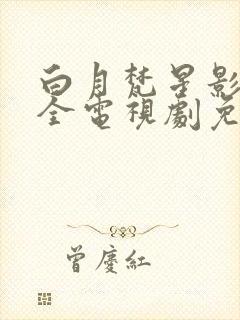 白月梵星影
全電視劇免
曾慶紅